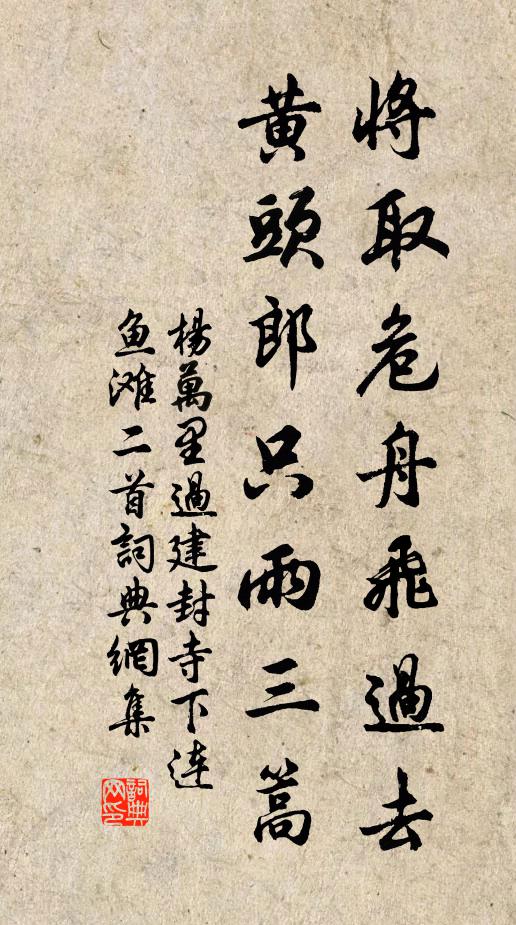 將取危舟飛過去
黃頭郎只兩三篙
楊萬里過建封寺下連
魚灘二首詞典網集
詞典网印